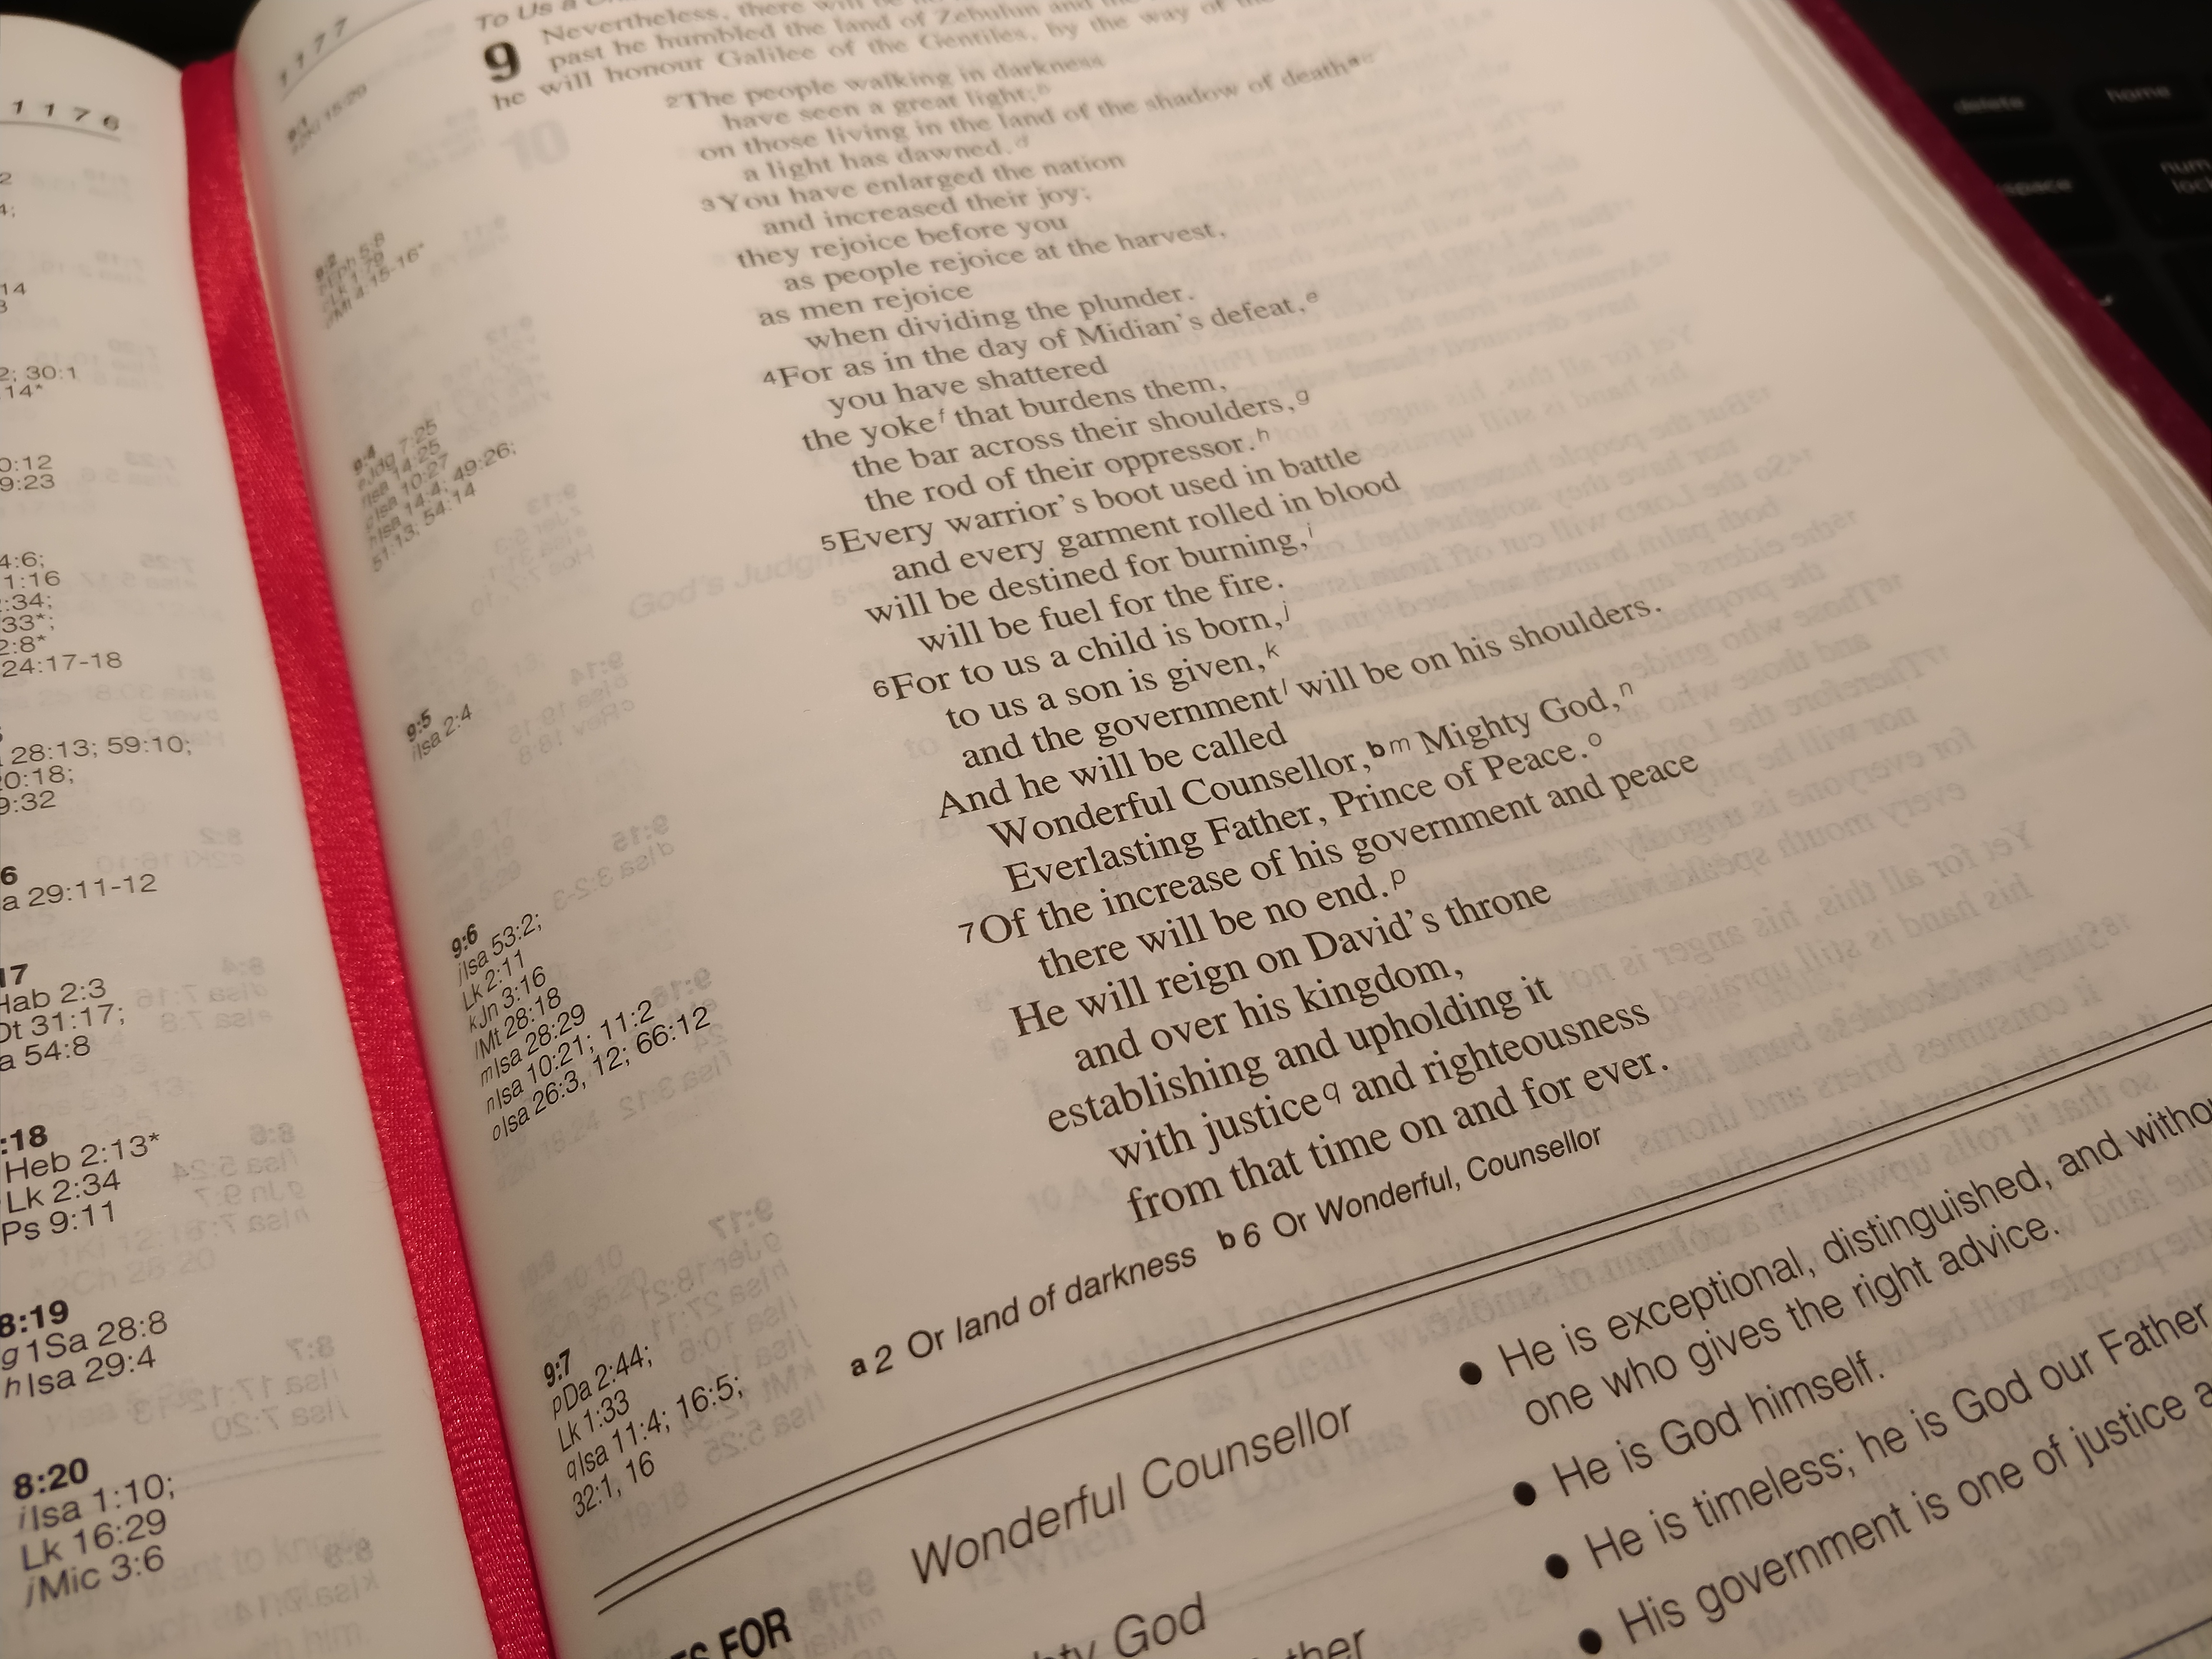 1176
2
4;
14
3
2; 30:1
14*
0:12
9:23
4:6;
1:16
2:34;
33*;
2:8*
24:17-18
28:13; 59:10;
20:18;
9:32
6
a 29:11-12
17
Hab 2:3
Dt 31:17;
a 54:8
:18
Heb 2:13*
Lk 2:34
Ps 9:11
8:19
g1Sa 28:8
hIsa 29:4
8:20
iIsa 1:10;
Lk 16:29
jMic 3:6
1177
To Us a
9 Nevertheless, there will be
past he humbled the land of Zebulun and
he will honour Galilee of the Gentiles, by the way of
2The people walking in darkness
have seen a great light;
on those living in the land of the shadow of death
a light has dawned.d
3You have enlarged the nation
and increased their joy;
they rejoice before you
as people rejoice at the harvest,
as men rejoice
when dividing the plunder.
4For as in the day of Midian's defeat,e
you have shattered
the yokef that burdens them,
the bar across their shoulders,g
the rod of their oppressor.h
5Every warrior's boot used in battle
and every garment rolled in blood
will be destined for burning,i
will be fuel for the fire.
6For to us a child is born,j
to us a son is given,k
and the governmentl will be on his shoulders.
And he will be called
Wonderful Counsellor,bm Mighty God,n
Everlasting Father, Prince of Peace.o
7Of the increase of his government and peace
there will be no end.p
He will reign on David's throne
and over his kingdom,
establishing and upholding it
with justiceq and righteousness
from that time on and for ever.
a2 Or land of darkness b6 Or Wonderful, Counsellor
9:2
Eph 5:8
Lk 1:79
Mt 4:15-16*
9:4
eJdg 7:25
fIsa 14:25
gIsa 10:27
hIsa 14:4; 49:26;
51:13; 54:14
9:5
iIsa 2:4
9:6
jIsa 53:2;
Lk 2:11
kJn 3:16
lMt 28:18
mIsa 28:29
nIsa 10:21; 11:2
oIsa 26:3, 12; 66:12
9:7
pDa 2:44;
Lk 1:33
qIsa 11:4; 16:5;
32:1, 16
ES FOR
Wonderful Counsellor
hty God
ther
• He is exceptional, distinguished, and witho
one who gives the right advice.
• He is God himself.
• He is timeless; he is God our Father
• His government is one of justice a
delete
home
space
num
lock